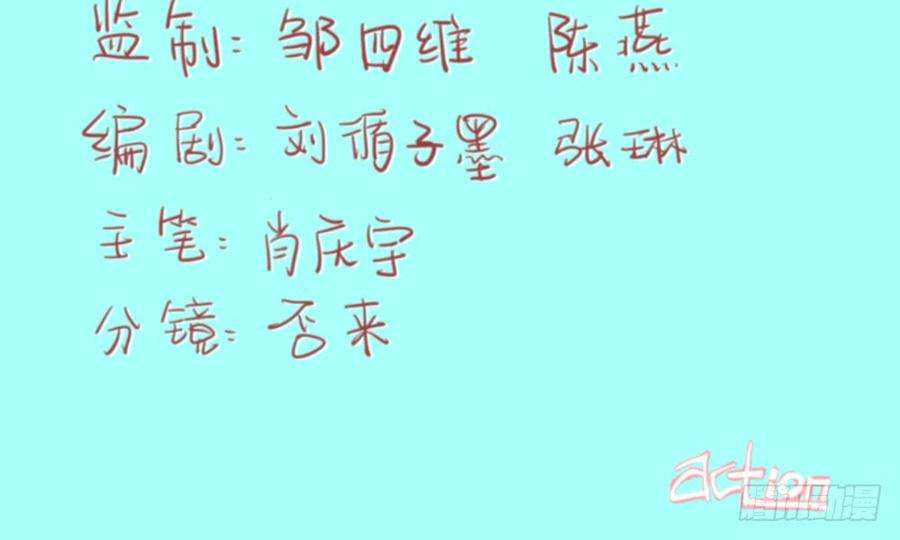 监制：邹四维 陈燕
编剧：刘循子墨 张琳
主笔：肖庆宇
分镜：否来
action
腾讯动漫